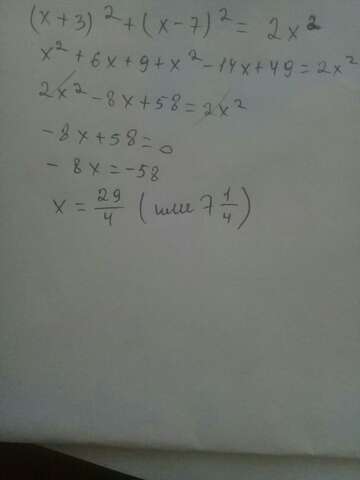 (x+3)² + (x-7)² = 2x²
x² + 6x + 9 + x² - 14x + 49 = 2x²
2x² - 8x + 58 = 2x²
- 8x + 58 = 0
- 8x = -58
x = 29/4 (или 7 1/4)